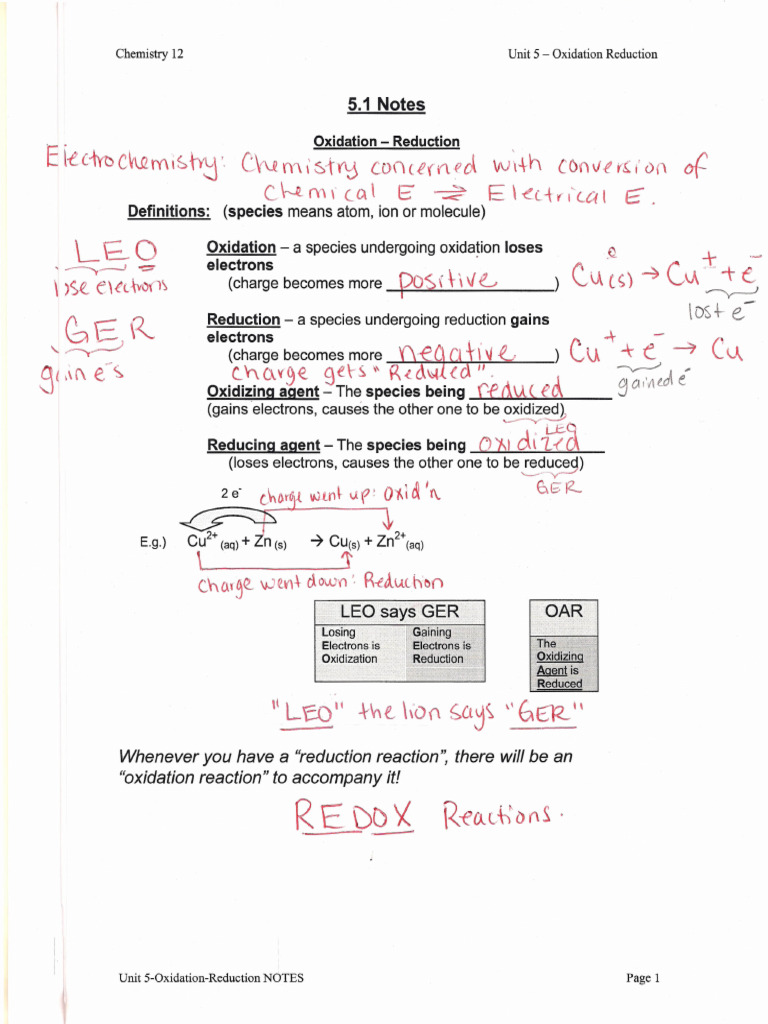 Chemistry 12 Unit 5 – Oxidation Reduction
5.1 Notes
Oxidation – Reduction
Electrochemistry: Chemistry concerned with conversion of
Chemical E ⇌ Electrical E.
Definitions: (species means atom, ion or molecule)
LEO
lose electrons
Oxidation – a species undergoing oxidation loses
electrons
(charge becomes more positive)
Cu(s) → Cu⁺ + e⁻
lost e⁻
GER
gain e⁻s
Reduction – a species undergoing reduction gains
electrons
(charge becomes more negative)
Cu⁺ + e⁻ → Cu
gained e⁻
charge gets "Reduced".
Oxidizing agent – The species being reduced
(gains electrons, causes the other one to be oxidized)
LEO
Reducing agent – The species being oxidized
(loses electrons, causes the other one to be reduced)
GER
2 e⁻ charge went up: Oxid'n
E.g.) Cu²⁺ (aq) + Zn (s) → Cu(s) + Zn²⁺(aq)
Charge went down: Reduction
LEO says GER
Losing
Electrons is
Oxidization
Gaining
Electrons is
Reduction
OAR
The
Oxidizing
Agent is
Reduced
"LEO" the lion says "GER"
Whenever you have a "reduction reaction", there will be an
"oxidation reaction" to accompany it!
REDOX Reactions.
Unit 5-Oxidation-Reduction NOTES Page 1